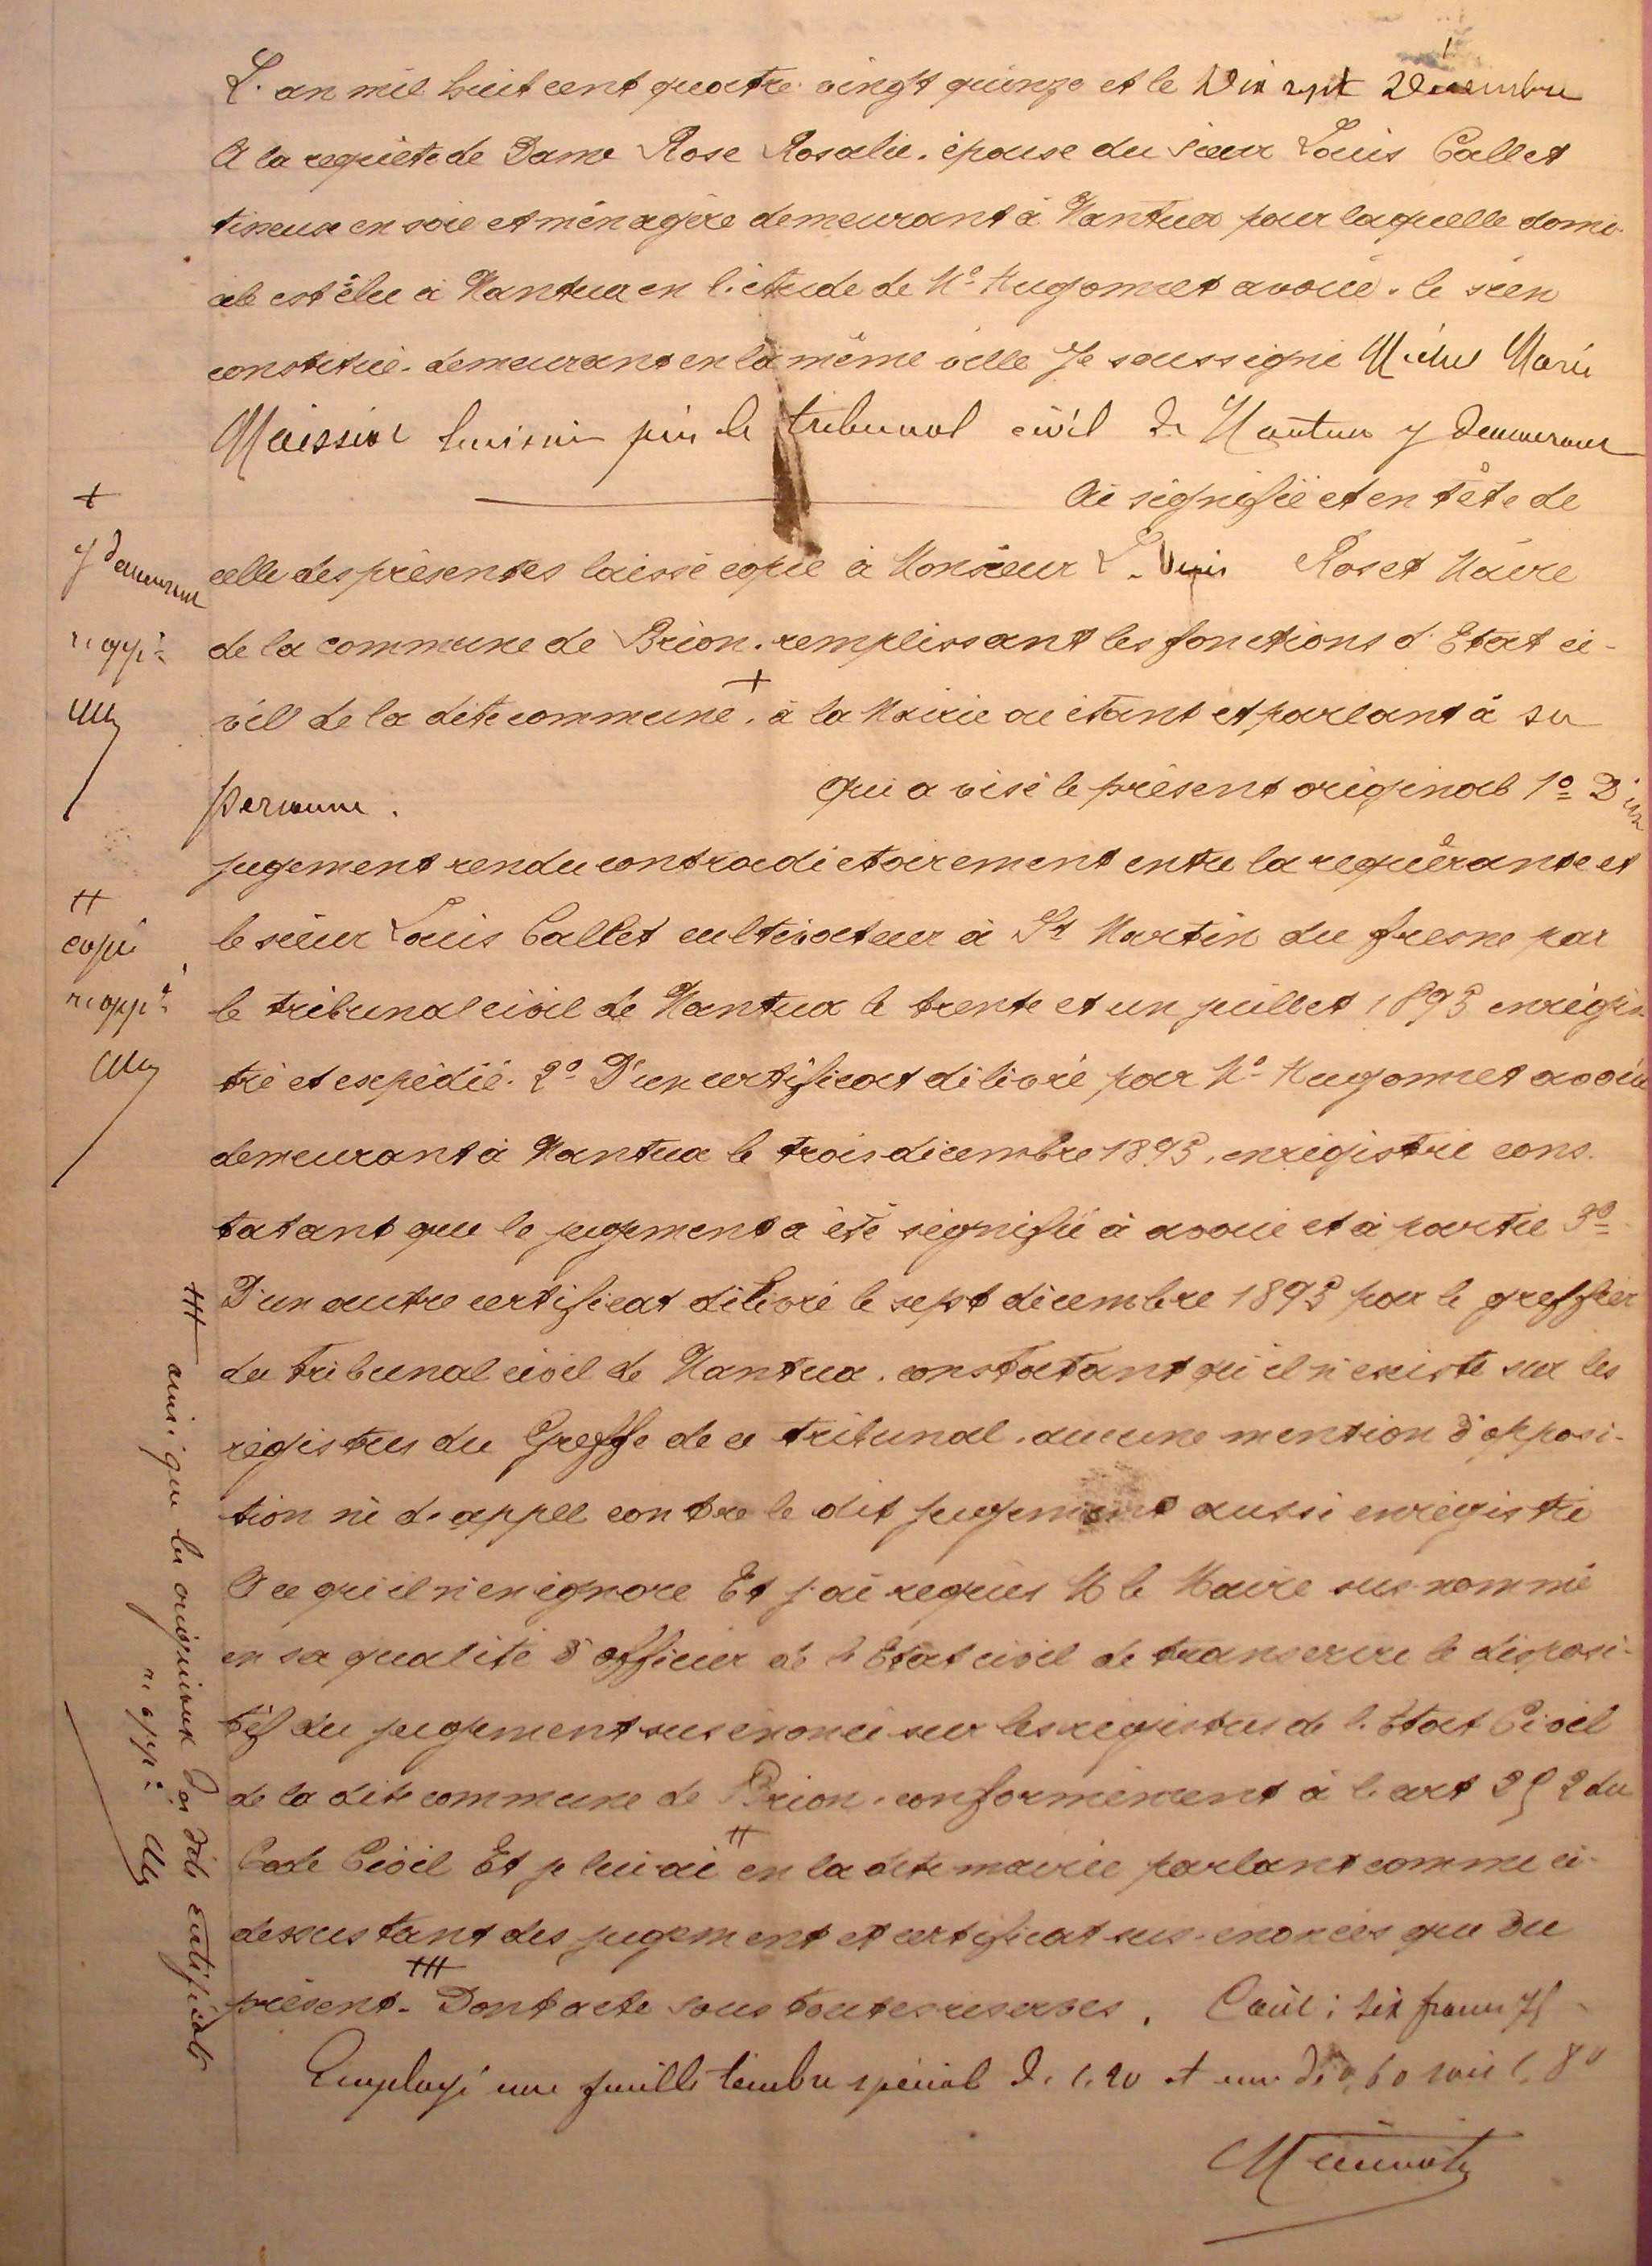 L'an mil huit cent quatre vingt quinze et le Dix sept Décembre
A la requête de Dame Rose Rosalie, épouse du sieur Louis Callet
tisseuse en soie et ménagère demeurant à Nantua pour laquelle domi-
cile est élu à Nantua en l'étude de Me Hugonnet avoué, le sien
constitué, demeurant en la même ville Je soussigné Michel Marie
huissier près le tribunal civil de Nantua y demeurant
Ai signifié et en tête de
celle des présentes laissé copie à Monsieur Roset Maire
de la commune de Brion, remplissant les fonctions d'Etat ci-
vil de la dite commune, + à la Mairie où étant et parlant à sa
personne. qui a visé le présent original 1º D'un
jugement rendu contradictoirement entre la requérante et
le sieur Louis Callet cultivateur à St Martin du fresne par
le tribunal civil de Nantua le trente et un juillet 1895 enregis-
tré et expédié. 2º D'un certificat délivré par Me Hugonnet avoué
demeurant à Nantua le trois décembre 1895, enregistré cons-
tatant que le jugement a été signifié à avoué et à partie 3º
D'un autre certificat délivré le sept décembre 1895 par le greffier
du tribunal civil de Nantua, constatant qu'il n'existe sur les
régistres du Greffe de ce tribunal, aucune mention d'opposi-
tion ni d'appel contre le dit jugement aussi enregistré
A ce qu'il n'en ignore Et j'ai requis M le Maire sus-nommé
en sa qualité d'officier de l'Etat civil de transcrire le disposi-
tif du jugement sus énoncé sur les registres de l'Etat Civil
de la dite commune de Brion, conformément à l'art 252 du
Code Civil Et je lui ai ++ en la dite mairie parlant comme ci-
dessus tant des jugement et certificat sus-énoncés que du
présent +++ Dont acte sous toutes reserves. Coût: six francs 75
Employé une feuille timbre spécial de 1,20 et une de 0,60 soit 1,80
+
y demeurant
r. app.
++
copie
r. app.
+++ ainsi que les originaux des dits certificats
r. app.